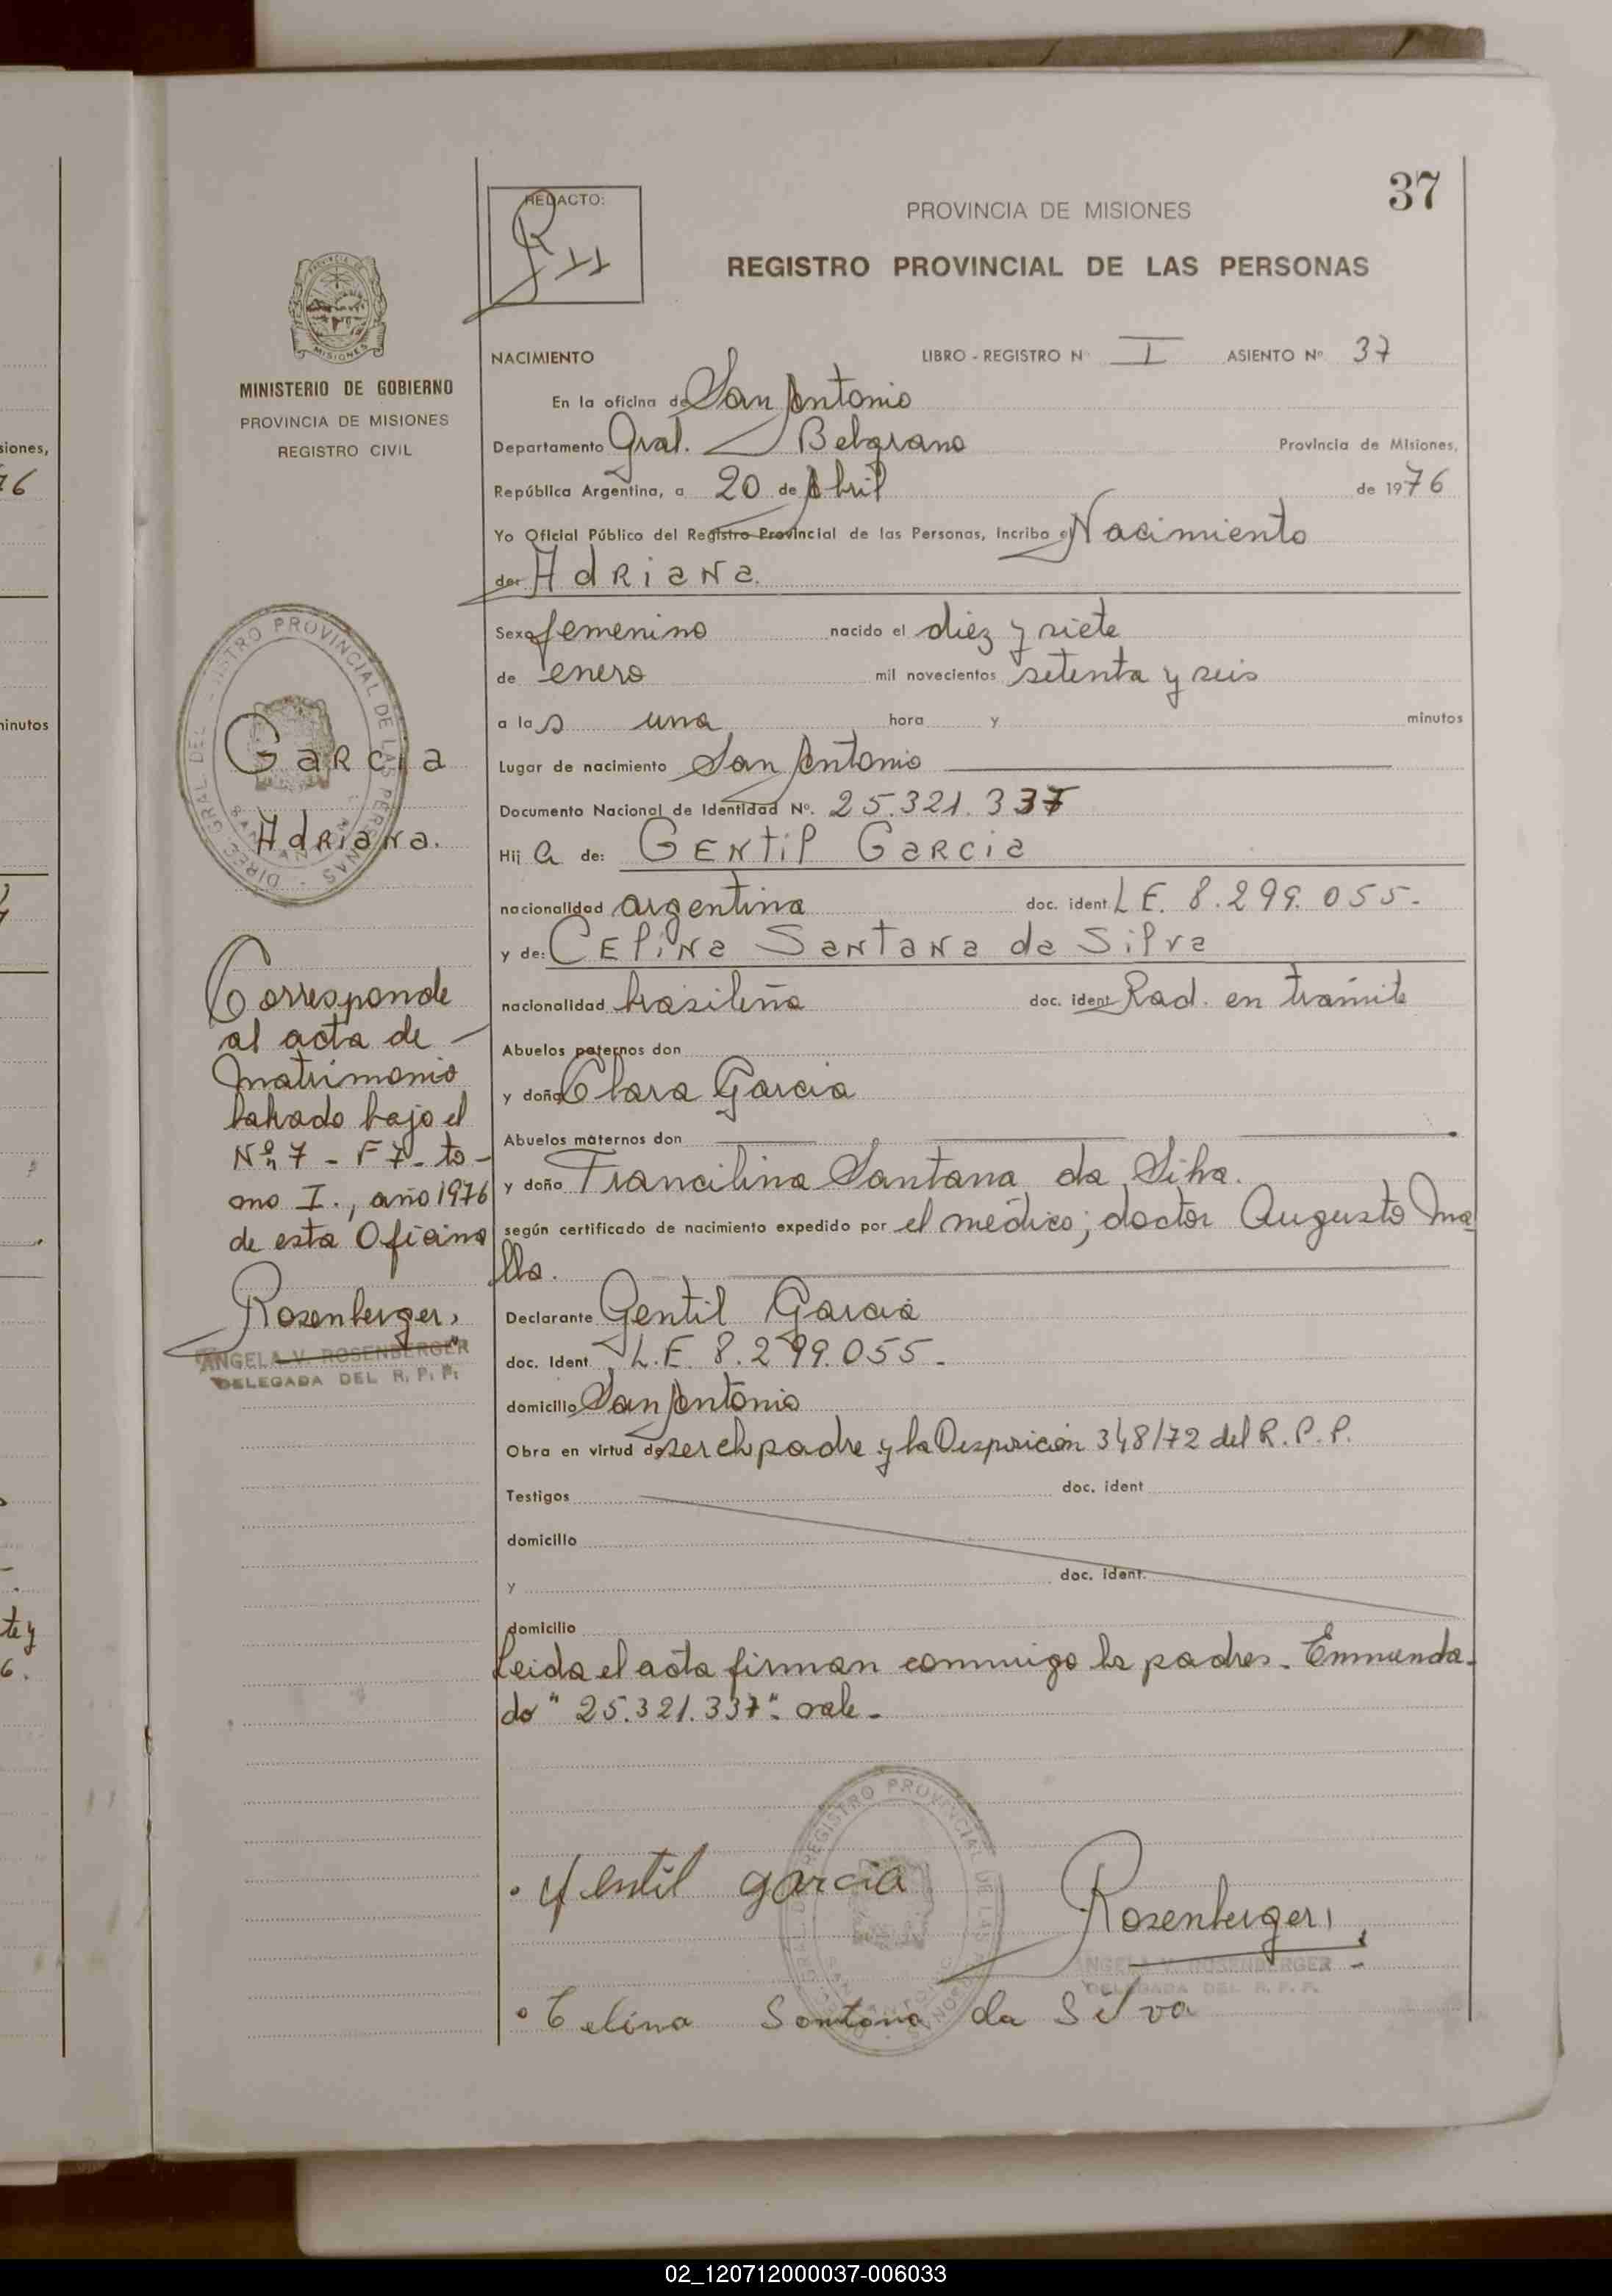 siones,
76
minutos
te y
6.
PROVINCIA DE MISIONES
MINISTERIO DE GOBIERNO
PROVINCIA DE MISIONES
REGISTRO CIVIL
DIREC. GRAL DEL REGISTRO PROVINCIAL DE LAS PERSONAS
Garcia
Adriana.
Corresponde
al acta de -
Matrimonio
labrado bajo el
Nº 7 - F 7 - to-
mo I., año 1976
de esta Oficina
Rosenberger
ANGELA V. ROSENBERGER
DELEGADA DEL R. P. P.
REDACTO:
37
PROVINCIA DE MISIONES
REGISTRO PROVINCIAL DE LAS PERSONAS
NACIMIENTO LIBRO - REGISTRO Nº I ASIENTO Nº 37
En la oficina de San Antonio
Departamento Gral. Belgrano Provincia de Misiones,
República Argentina, a 20 de Abril de 1976
Yo Oficial Público del Registro Provincial de las Personas, Incribo el Nacimiento
de: Adriana.
Sexo femenino nacido el diez y siete
de enero mil novecientos setenta y seis
a las una hora y minutos
Lugar de nacimiento San Antonio
Documento Nacional de Identidad Nº. 25.321.337
Hij a de: Gentil Garcia
nacionalidad argentina doc. ident. L E. 8.299.055-
y de: Celina Santana da Silva
nacionalidad brasileña doc. ident Rad. en trámite
Abuelos paternos don
y doña Clara Garcia
Abuelos maternos don
y doña Francilina Santana da Silva.
según certificado de nacimiento expedido por el médico; doctor Augusto Ma
lla.
Declarante Gentil Garcia
doc. Ident L.E. 8.299.055-
domicilio San Antonio
Obra en virtud de ser el padre y la Disposición 348/72 del R. P. P.
Testigos doc. ident
domicilio
y doc. ident.
domicilio
Leida el acta firman conmigo los padres - Enmienda-
do " 25.321.337 " vale -
Gentil garcia
Rosenberger
ANGELA V. ROSENBERGER
DELEGADA DEL R. P. P.
Celina Santana da Silva
02_120712000037-006033